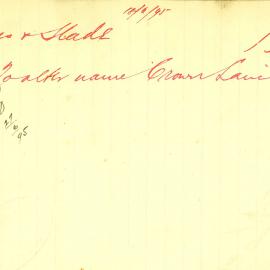 12/9/95
& Slade
To alter name Crown Lane
27/9/95